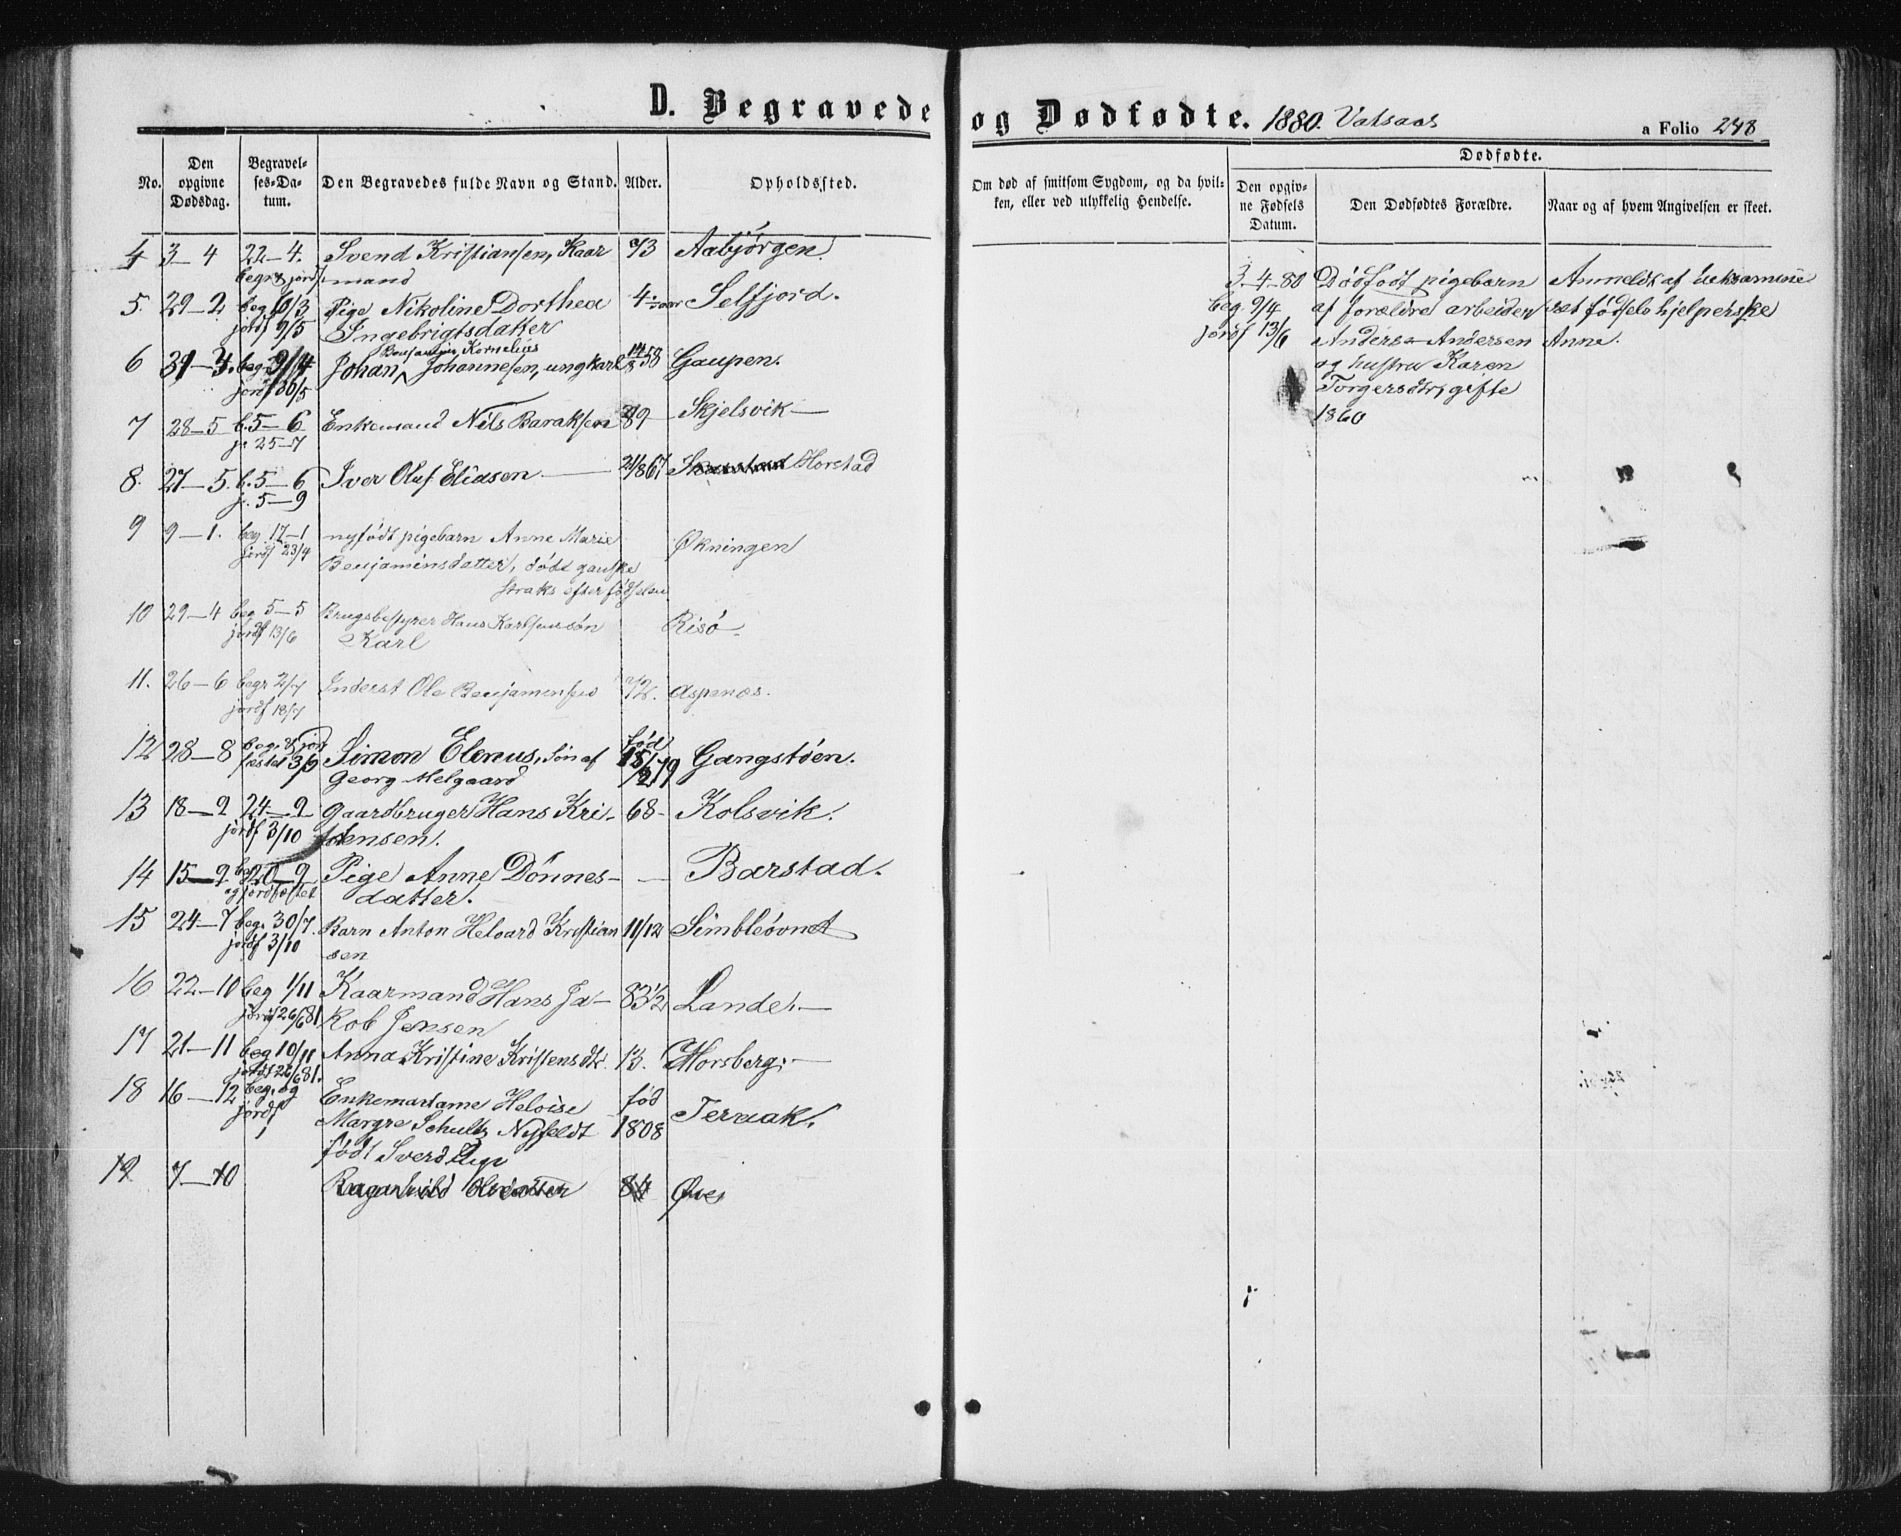 D. Begravede og Dødfødte. 1880. Vatsaas
a Folio 248
No.
Den opgivne Dødsdag.
Begravelses-Datum.
Den Begravedes fulde Navn og Stand.
Alder.
Opholdssted.
Om død af smitsom Sygdom, og da hvilken, eller ved ulykkelig Hendelse.
Dødfødte.
Den opgivne Fødsels Datum.
Den Dødfødtes Forældre.
Naar og af hvem Angivelsen er skeet.
4 3–4 22–4. Svend Kristiansen, Kaar 73 Aabjørgen.
begr & jordf. mand
5. 29–2 beg 6/3 Pige Nikoline Dorthea 4 Selfjord.
jordf 9/5 Ingebrigtsdatter
Benjamin Kornelius
6 beg 9/4 Johan Johannesen, ungkarl 58 Gaupen.
7 28–5 b. 5–6 Enkemand Nils Baraksen 89 Skjelsvik
j. 25–7
8. 27–5. b. 5–6 Iver Oluf Eliasen 21/8 67 Horstad
j. 5–9
9 9–1. beg 17–1 nyfødt pigebarn Anne Marie Økningen
jordf 23/4 Benjaminsdatter, dødt ganske
straks efter fødselen
10 29–4 beg 5–5 Brugsbestyrer Hans Karlsens søn Risø
jordf 13/6 Karl
11. 26–6 begr 2/7 Inderst Ole Benjaminsen 72. Aspenæs.
jordf 18/7
12 28–8 beg. & jord Simon Elenus, Søn af fød Gangstøen.
fæstet 3/9 Georg Melgaard 79
13 18–9 24–9 Gaardbruger Hans Kri- 68 Kolsvik.
jordf 3/10 stensen.
14 15–9 20–9 Pige Anne Dønnes- — Barstad.
og jordfæstet datter.
15 24–7 beg. 30/7. Barn Anton Helvard Kristian 11/12 Simbleøvnet
jordf 3/10 sen
16 22–10 beg 1/11 Kaarmand Hans Ja- 83 1/2 Lande.
jordf 26/6 81. kob Jensen
17 21–11 beg 10/11 Anna Kristine Kristensdtr. 13. Horsberg.
jordf 26/6 81.
18 16–12 beg. og Enkemadame Heloise fød Terraak.
jordf Margre Schultz Nyfeldt 1808
født Sverdrup
19 7–10 Ragnhild Olsdatter 84
3–4–80 Dødfødt pigebarn Anmeldt af ueksamine
beg 9/4 af forældre arbeider ret fødselshjelperske
jordf 13/6 Anders Andersen Anne.
og hustru Karen
Torgersdtr, gifte
1860